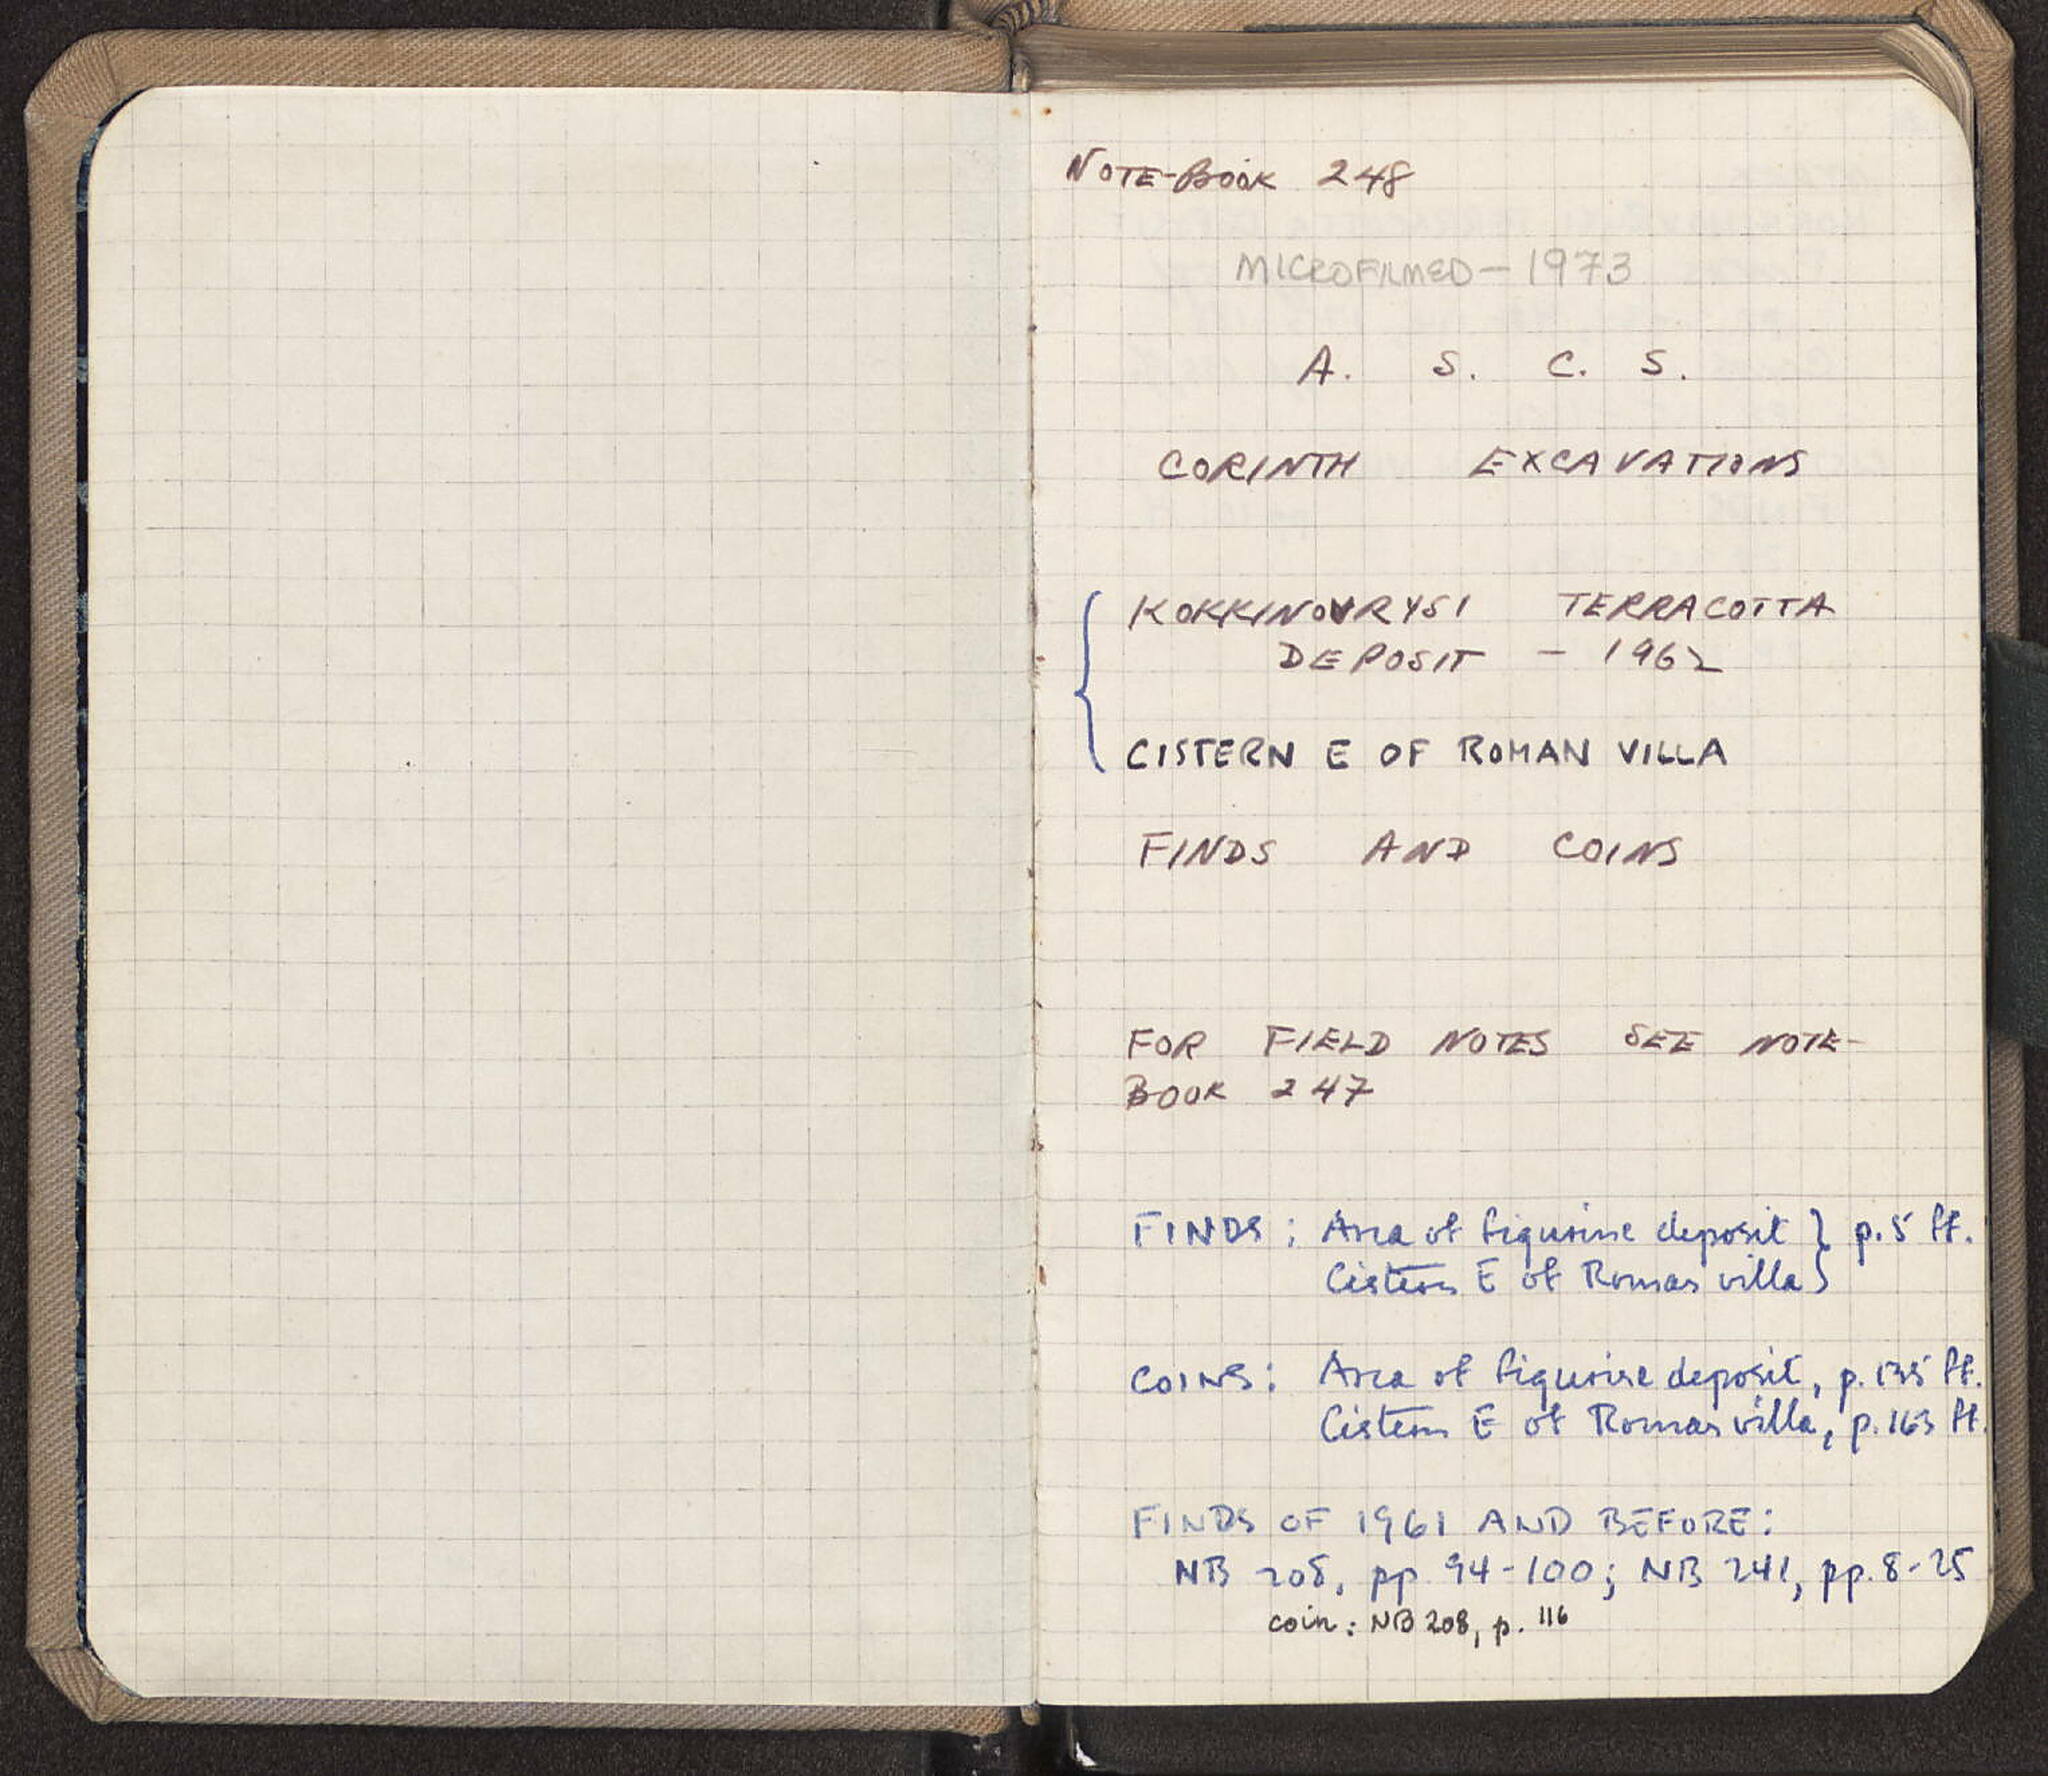 NOTE-BOOK 248
MICROFILMED - 1973
A. S. C. S.
CORINTH EXCAVATIONS
KOKKINOVRYSI TERRACOTTA
DEPOSIT - 1962
CISTERN E OF ROMAN VILLA
FINDS AND COINS
FOR FIELD NOTES SEE NOTE-
BOOK 247
FINDS: Area of figurine deposit } p. 5 ff.
Cistern E of Roman villa }
COINS: Area of figurine deposit, p. 135 ff.
Cistern E of Roman villa, p. 163 ff.
FINDS OF 1961 AND BEFORE:
NB 208, pp. 94-100; NB 241, pp. 8-25
coin: NB 208, p. 116